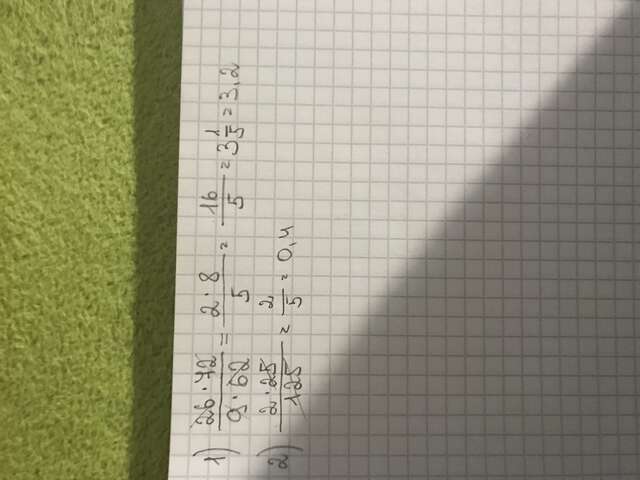 1) 26·72/9·62 = 2·8/5 = 16/5 = 3 1/5 = 3,2
2) 2·25/125 = 2/5 = 0,4